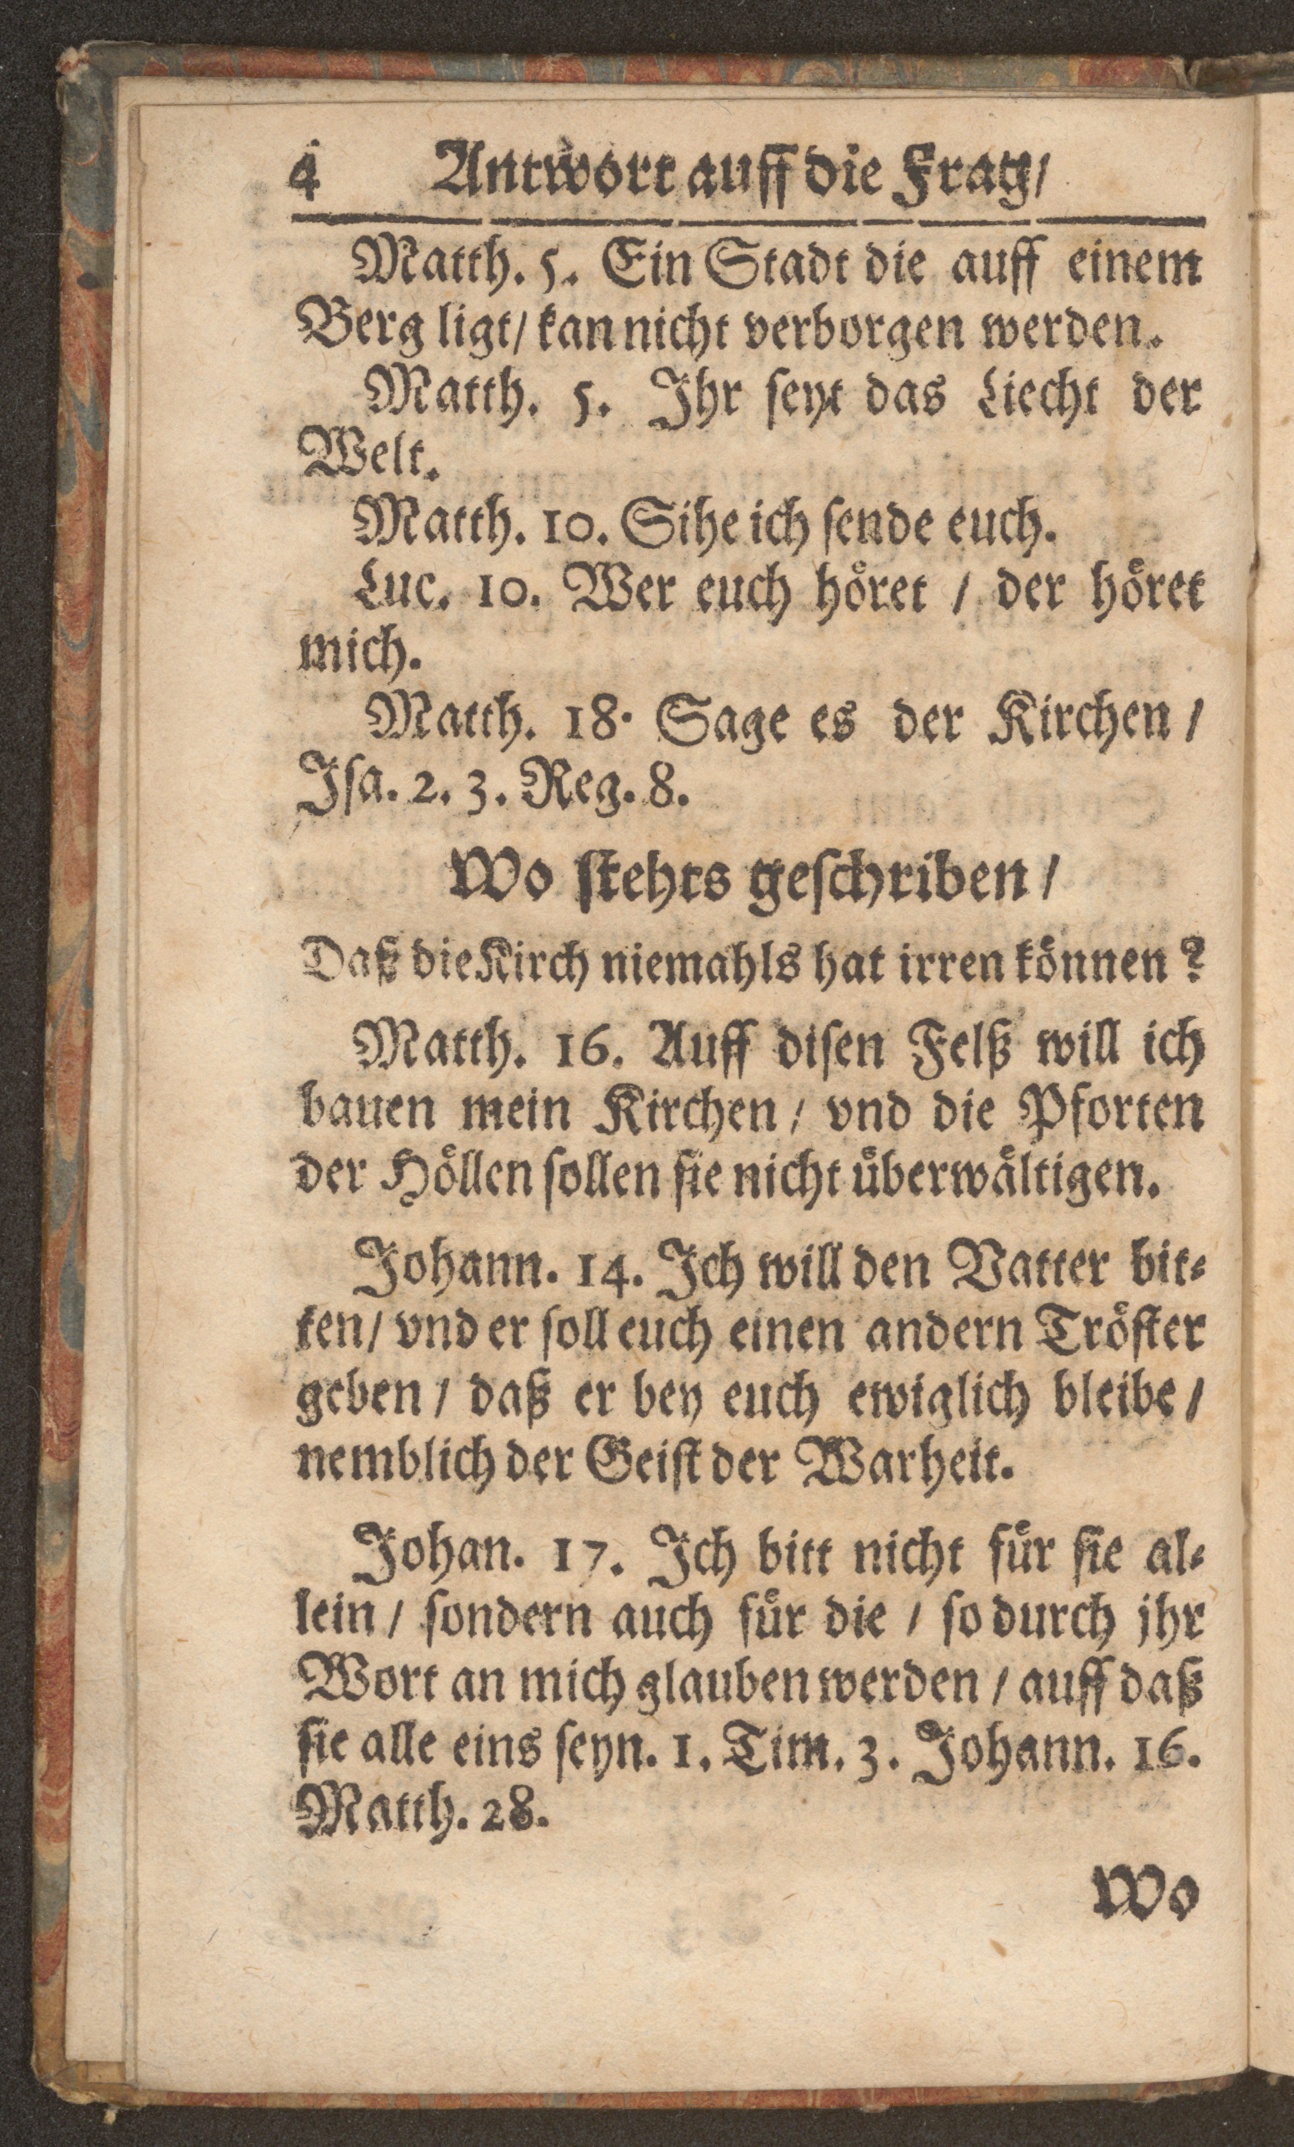 4 Antwort auff die Frag/
Matth. 5. Ein Stadt die auff einem
Berg ligt/ kan nicht verborgen werden.
Matth. 5. Ihr seyt das Liecht der
Welt.
Matth. 10. Sihe ich sende euch.
Luc. 10. Wer euch höret / der höret
mich.
Matth. 18. Sage es der Kirchen /
Isa. 2. 3. Reg. 8.
Wo stehts geschriben /
Daß die Kirch niemahls hat irren können ?
Matth. 16. Auff disen Felß will ich
bauen mein Kirchen / vnd die Pforten
der Höllen sollen sie nicht überwältigen.
Johann. 14. Ich will den Vatter bit-
ten/ vnd er soll euch einen andern Tröster
geben / daß er bey euch ewiglich bleibe /
nemblich der Geist der Warheit.
Johan. 17. Ich bitt nicht für sie al-
lein / sondern auch für die / so durch jhr
Wort an mich glauben werden / auff daß
sie alle eins seyn. 1. Tim. 3. Johann. 16.
Matth. 28.
Wo